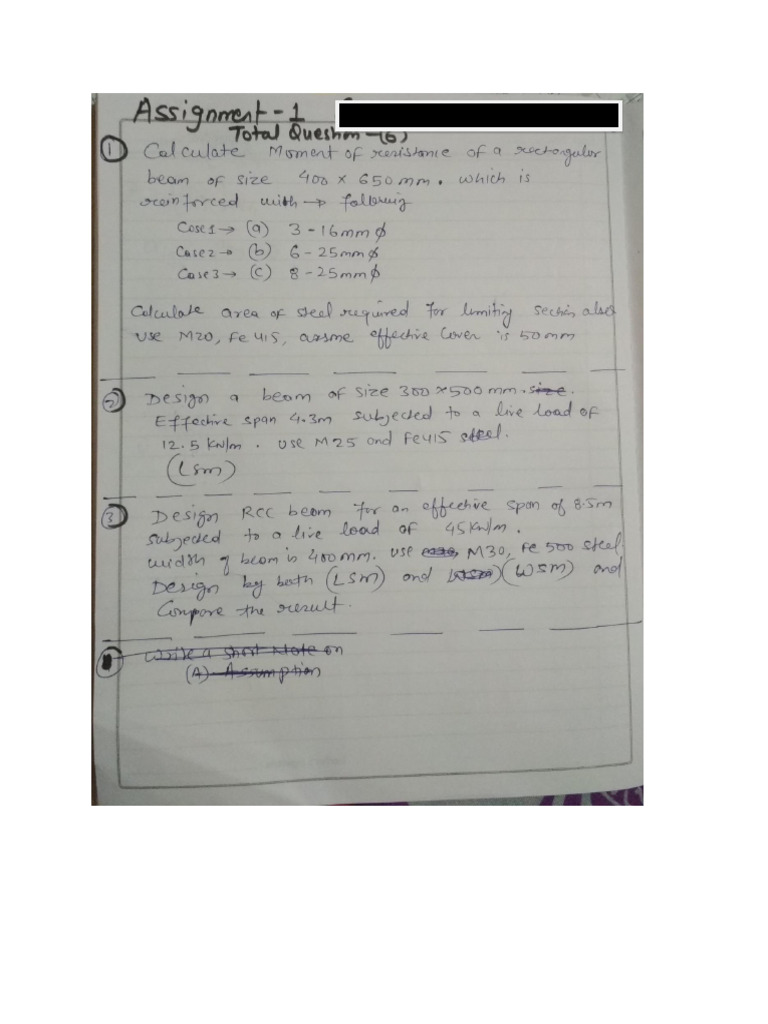 Assignment - 1
Total Question - (6)
① Calculate Moment of resistance of a rectangular
beam of size 400 × 650 mm. which is
reinforced with → following
Case1 → (a) 3 - 16mm ϕ
Case2 → (b) 6 - 25mm ϕ
Case3 → (c) 8 - 25mm ϕ
Calculate area of steel required for limiting section also
Use M20, Fe 415, assme effective cover is 50 mm
② Design a beam of size 300 × 500 mm. size.
Effective span 4.3m subjected to a live load of
12.5 KN/m. Use M25 and Fe415 steel.
(LSM)
③ Design RCC beam for an effective span of 8.5m
subjected to a live load of 45 KN/m.
width of beam is 400mm. Use M30, Fe 500 steel.
Design by both (LSM) and (WSM) and
Compare the result.
Write a short Note on
(A) Assumption